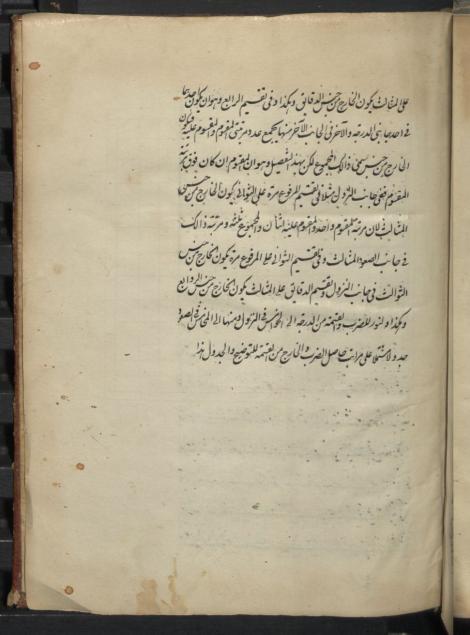 على الثالث يكون الخارج من جنس الدقايق وهكذا وفي تقسيم الرابع وهو ان يكون احدهما
في احد جانبي الدرجة والآخر في الجانب الآخر منها يجمع عدد مرتبتي المقسوم والمقسوم عليه فيكون
الخارج من جنس سمي ذلك المجموع لكن بهذا التفصيل وهو ان المقسوم ان كان فوق مرتبة
المقسوم ففي جانب النزول مثلا في تقسيم المرفوع مرة على الثواني يكون الخارج من جنس
المثالث لان مرتبة المقسوم واحد والمقسوم عليه اثنان والمجموع ثلثة ومرتبة ذلك
في جانب الصعود المثالث وفي تقسيم الثواني على المرفوع مرة يكون الخارج من جنس
الثوالث في جانب النزول وتقسيم الدقايق على الثالث يكون الخارج من جنس الروابع
وهكذا ولنورد للضرب والقسمة من الدرجة الى الخوامس في النزول ومنها الى المخامس في الصعود
جدولا مشتملا على مراتب حاصل الضرب والخارج من القسمة للتوضيح والجدول هذا